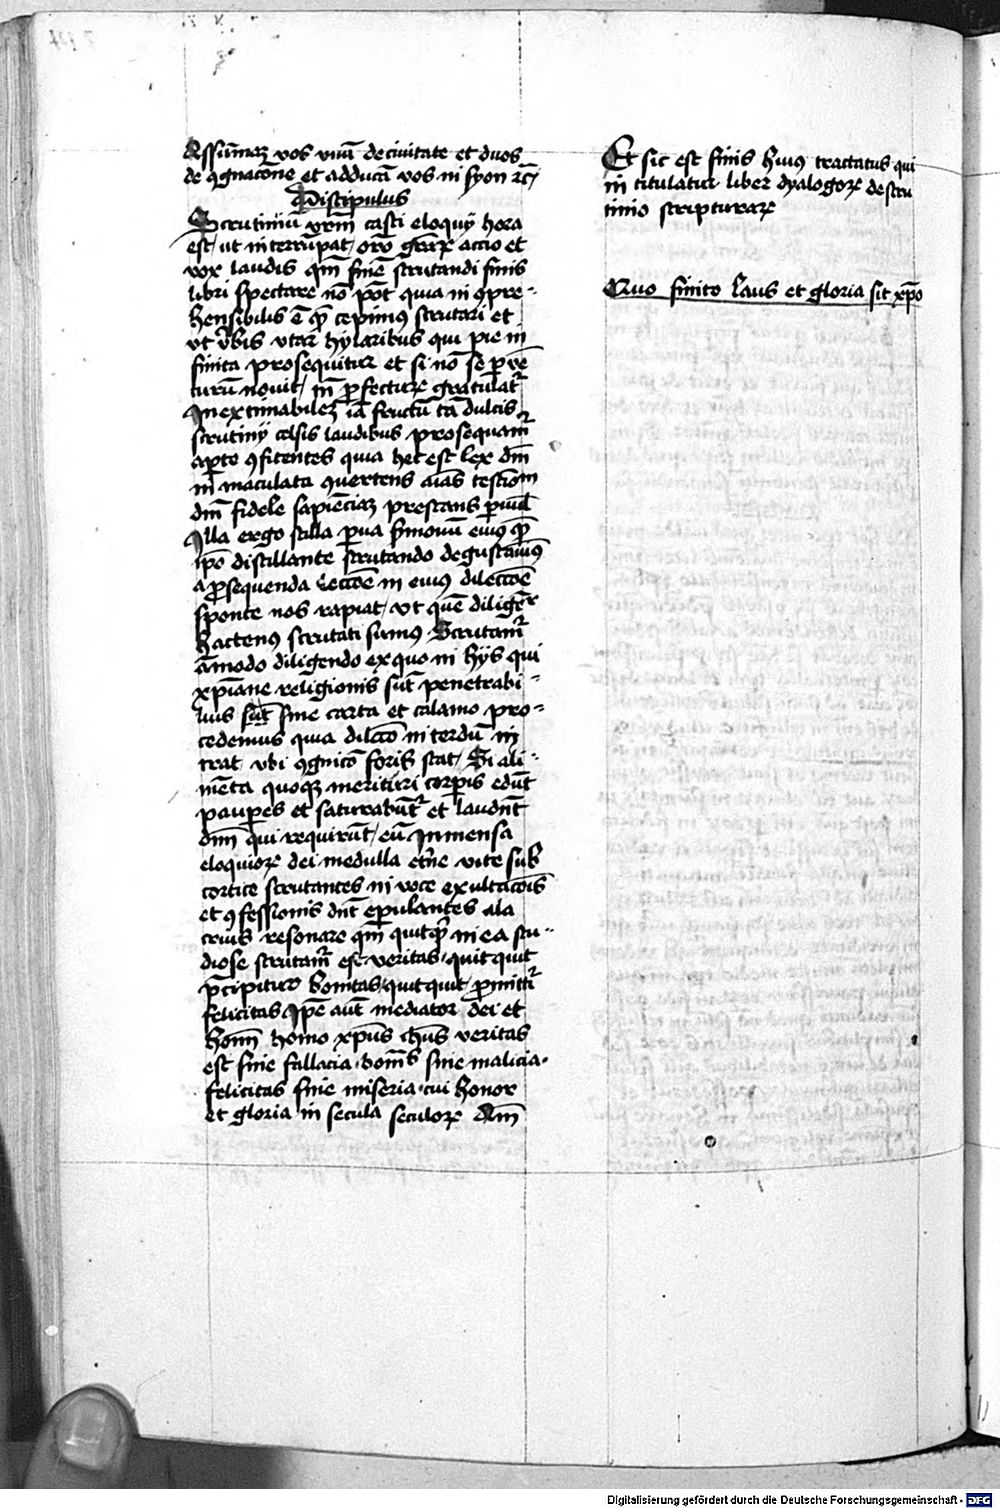 Assumam vos unū de civitate et duos
de ꝯgnacōne et adducā vos in syon ꝛc̄
Discipulus
Scrutiniū vr̄m casti eloquij hora
est, ut interrūpat, orō grār̄ actio et
vox laudis qm̄ finē scrutandi finis
libri spectare nō pōt quia in ꝯpre-
hensibilis ē qd̄ cepimꝰ scrutari et
ut v̄bis utar hylaribus qui pie in
finita prosequitur et si nō se ꝑvē
turū novit, tn̄ ꝓfecturꝫ gratulat̄
Inextimabilem iā fructū tā dulcis
scrutinij celsis laudibus prosequam̄
aꝑte ꝯfitentes quia hec est lex dn̄i
in maculata ꝯvertens aīas testiom̄
dn̄i fidele sapiēciam prestans ꝑvul̄
Illa ergo stilla ꝑva
ip̄o distillante scrutando degustavimꝰ
a ꝓsequenda lectōe in eiuꝰ dilectōe
sponte nos rapiat, ut quē diligēt̄
hactenꝰ scrutati sumꝰ Scrutam̄
āmodo diligendo ex quo in hijs qui
xp̄iane religionis sūt penetrabi-
lius sūt sine carta et calamo pro-
cedemus quia dilcō interdū in
trat, ubi ꝯgnicō foris stat, Si ali-
mēta quoqꝫ meritūri corꝑis edūt
pauꝑes et saturabūt̄ et laudn̄t
dn̄m qui requirūt, eū Inmensa
eloquiorꝫ dei medulla et̄ne vite sub
cortice scrutantes in voce exultacōis
et ꝯfessionis dn̄t epulantes ala
criuꝰ resonare qm̄ quitqd̄ in ea stu-
diose scrutam̄ est veritas, quitquit
p̄cipitur bonitas, quitquit, ꝓmittit̄
felicitas Ip̄e aūt mediator dei et
hom̄ homo xp̄us ih̄us veritas
est sine fallacia, bonīs sine malicia,
felicitas sine miseria, cui honor
et gloria in secula seculorꝫ Am̄
Et sic est finis huiꝰ tractatus qui
in titulatur liber dyalogorꝫ de scru
tinio scripturarꝫ
Quo finito Laus et gloria sit xp̄o
Digitalisierung gefördert durch die Deutsche Forschungsgemeinschaft - DFG